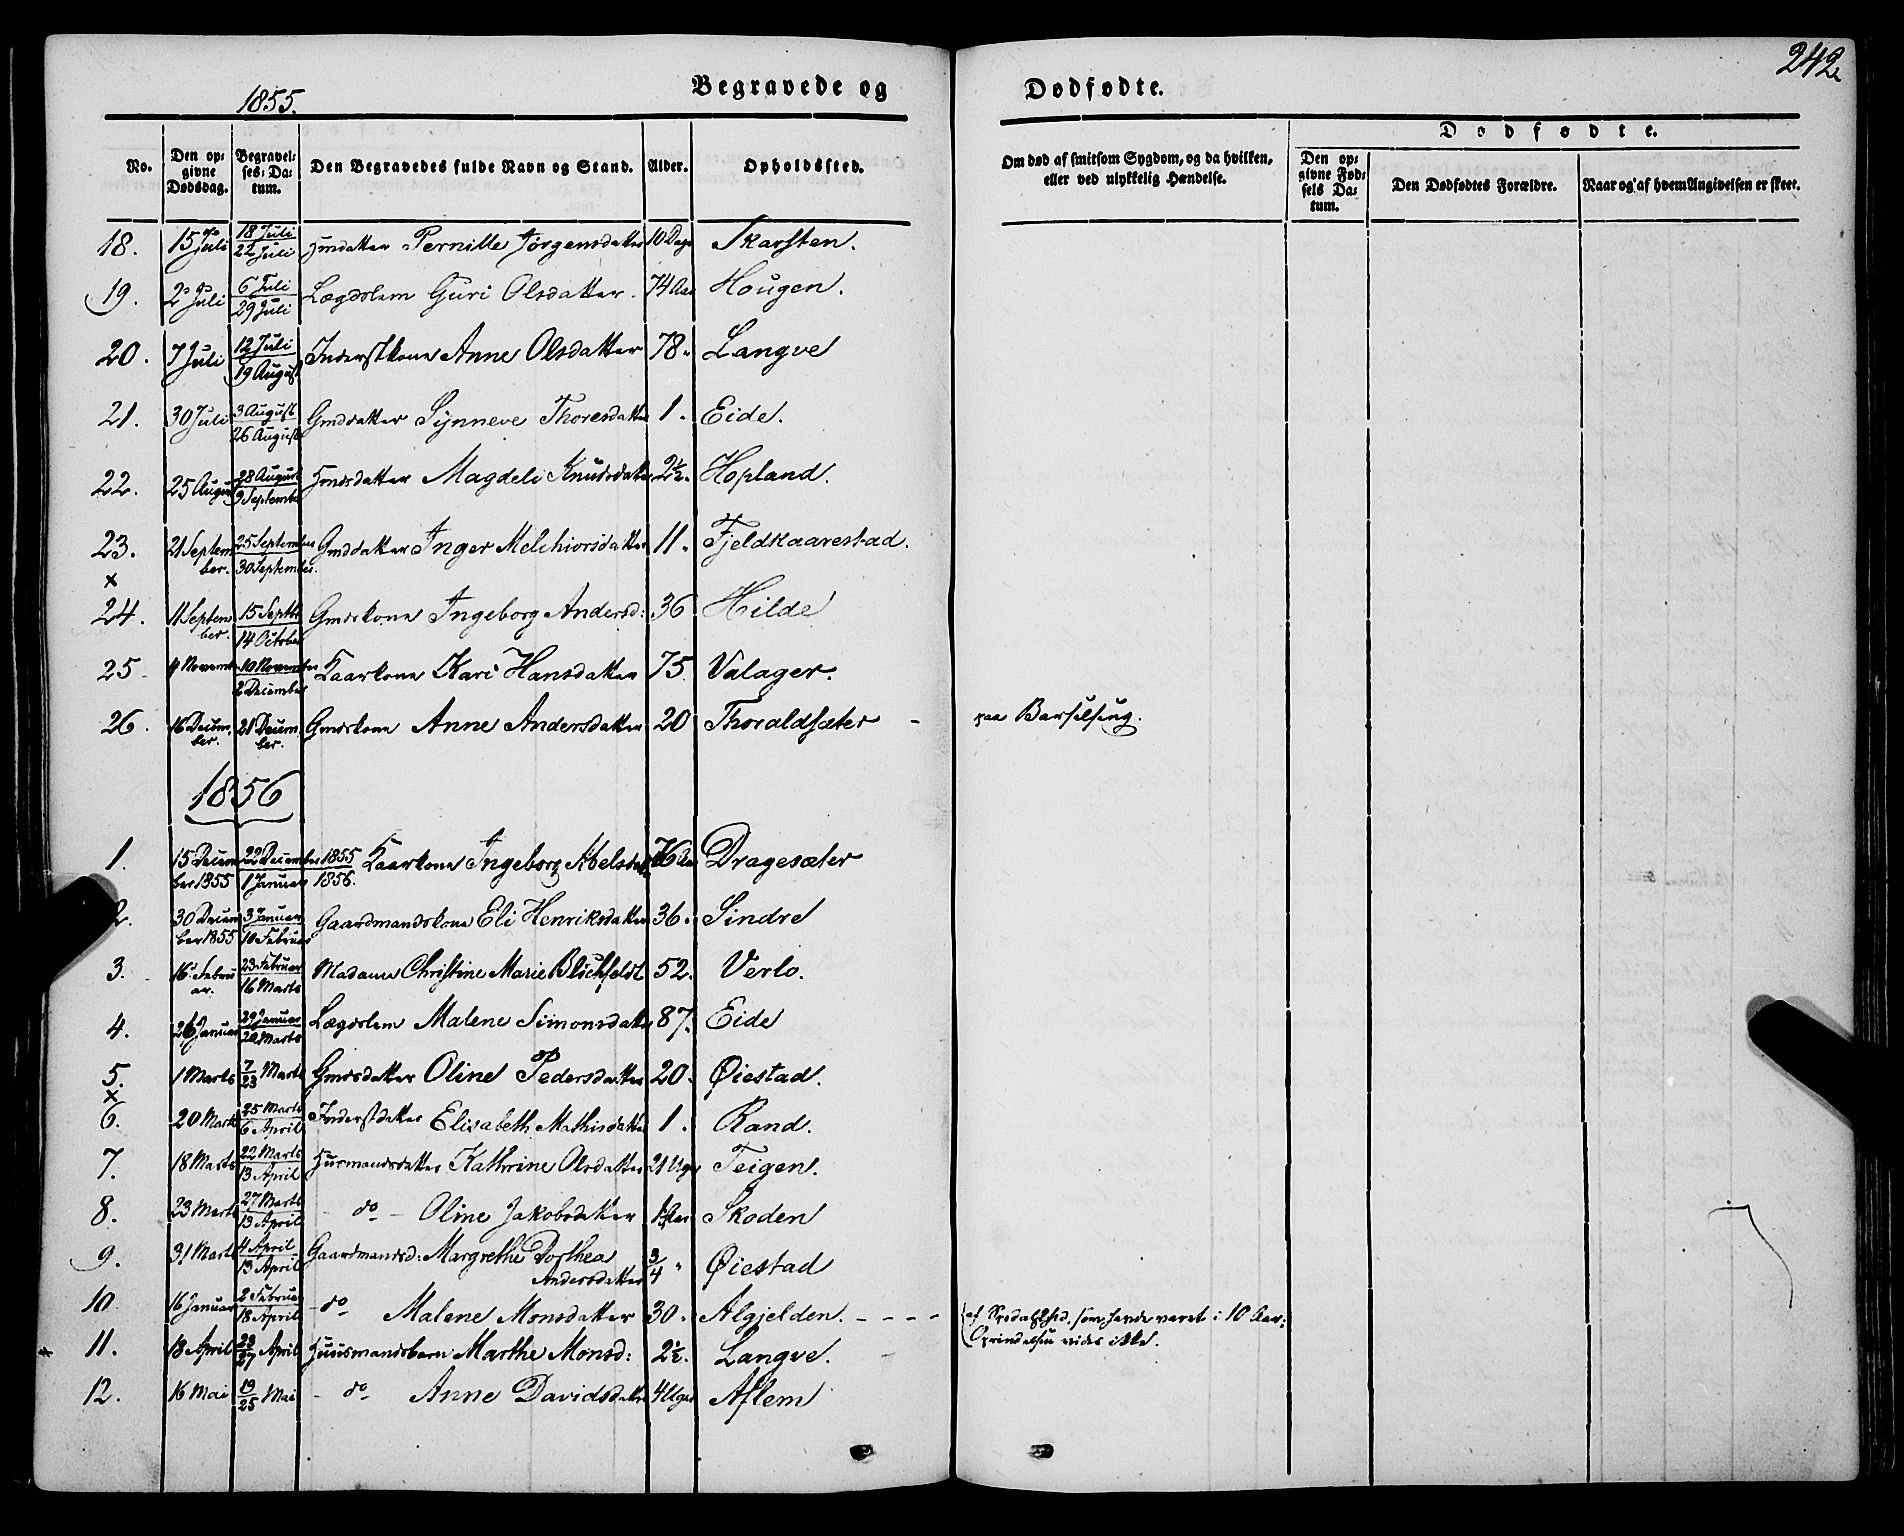 242
1855.
Begravede og
Dødfødte.
No.
Den opgivne Dødsdag.
Begravelses-Datum.
Den Begravedes fulde Navn og Stand.
Alder.
Opholdssted.
Om død af smitsom Sygdom, og da hvilken, eller ved ulykkelig Hændelse.
Dødfødte.
Den opgivne Fødsels Datum.
Den Dødfødtes Forældre.
Naar og af hvem Angivelsen er skeet.
18. 15 Juli 18 Juli 22 Juli Pernille Jørgensdatter 10 Dage Skarsten.
19. 2 Juli 6 Juli 29 Juli Lægdslem Guri Olsdatter. 74 Aar Hougen.
20. 7 Juli 12 Juli 19 August Inderstkone Anne Olsdatter 78 " Langve
21. 30 Juli 3 August 26 August Gmdsdatter Synneve Thoresdatter 1. Eide.
22. 25 August 28 August 9 September Hmdsdatter Magdeli Knudsdatter 2½. Hopland.
23. 21 September. 25 September 30 September. Gmdsdatter Inger Melchiorsdatter 11. Fjeldkaarestad.
x
24. 11 September. 15 Septbr 14 October Gmdskone Ingeborg Andersd: 36 Hilde
25 4 November 10 November 2 December Kaarkone Kari Hansdatter 75 Valager.
26. 16 December. 21 December. Gmdskone Anne Andersdatter 20 Thoraldsæter - paa Barselseng.
1856
1. 15 December 1855 22 December 1855 1 Januar 1856. Kaarkone Ingeborg Abelsdatter 76 Aar Dragesæter
2. 30 December 1855 3 Januar 10 Februar Gaardmandskone Eli Henriksdatter 36. Sindre
3. 16 Februar. 23 Februar 16 Marts Madame Christine Marie Blichfeldt 52. Verlo.
4. 26 Januar 29 Januar 20 Marts Lægdslem Malene Simonsdatter 87. Eide
5. 1 Marts 7/23 Marts Gmdsdatter Oline Pedersdatter 20. Øiestad.
x
6. 20 Marts 25 Marts 6 April Inderstdatter Elisabeth Mathisdatter 1. Rand.
7. 18 Marts 22 Marts 13 April Husmandsdatter Kathrine Olsdatter 21 Uger Teigen.
8. 23 Marts 27 Marts 13 April - do - Oline Jakobsdatter 1 Aar Skoden
9. 31 Marts 4 April 13 April Gaardmandsd: Margrethe Dorthea Andersdatter 3/4 " Øiestad
10 16 Januar 2 Februar 18 April - do Malene Monsdatter 30. Algjelden. - - - - af Spedalshed, som havde varet i 10 Aar.
Oprindelsen vides ikke.
11. 18 April 23/27 April Huusmandsbarn Marthe Monsd: 2½. Langve.
12. 16 Mai 19/25 Mai - do Anne Davidsdatter 4 Uger Aflem